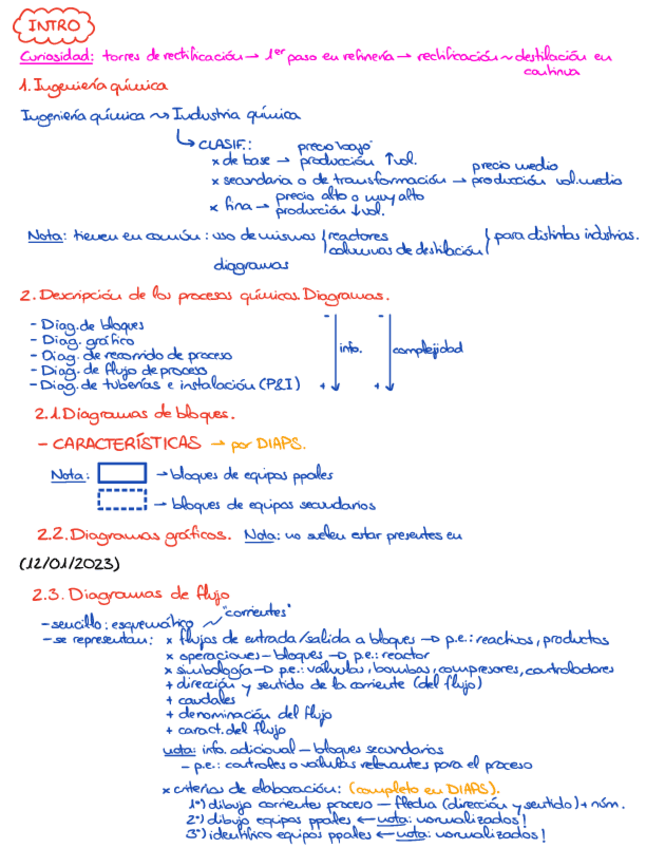 INTRO
Curiosidad: torres de rectificación → 1er paso en refinería → rectificación ~ destilación en
continua
1. Ingeniería química
Ingeniería química ~> Industria química
↳ CLASIF.: precio bajo
x de base → producción ↑vol. precio medio
x secundaria o de transformación → producción vol. medio
precio alto o muy alto
x fina → producción ↓vol.
Nota: tienen en común: uso de mismos reactores para distintas industrias.
columnas de destilación
diagramas
2. Descripción de los procesos químicos. Diagramas.
- Diag. de bloques
- Diag. gráfico
- Diag. de recorrido de proceso
- Diag. de flujo de proceso
- Diag. de tuberías e instalación (P&I)
- + info.
- + complejidad
2.1. Diagramas de bloques.
- CARACTERÍSTICAS → por DIAPS.
Nota: → bloques de equipos ppales
→ bloques de equipos secundarios
2.2. Diagramas gráficos. Nota: no suelen estar presentes en
(12/01/2023)
2.3. Diagramas de flujo
"corrientes"
- sencillo: esquemático
- se representan: x flujos de entrada/salida a bloques → p.e.: reactivos, productos
x operaciones - bloques → p.e.: reactor
x simbología → p.e.: válvulas, bombas, compresores, controladores
+ dirección y sentido de la corriente (del flujo)
+ caudales
+ denominación del flujo
+ caract. del flujo
nota: info. adicional - bloques secundarios
- p.e.: controles o válvulas relevantes para el proceso
x criterios de elaboración: (completo en DIAPS).
1º) dibujo corrientes proceso - flecha (dirección y sentido) + núm.
2º) dibujo equipos ppales ← nota: normalizados!
3º) identifico equipos ppales ← nota: normalizados!